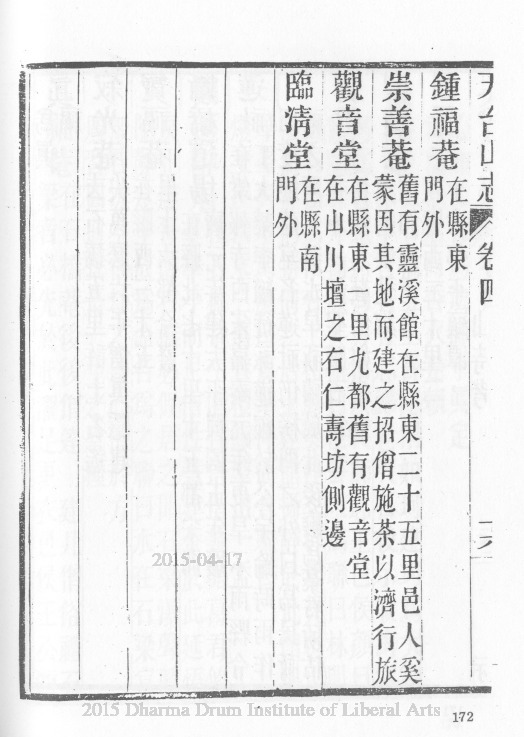 天台山志 卷四
鍾福菴 在縣東
門外
崇善菴 舊有靈溪館在縣東二十五里邑人奚
蒙因其地而建之招僧施茶以濟行旅
觀音堂 在縣東一里九都舊有觀音堂
在山川壇之右仁壽坊側邊
臨清堂 在縣南
門外
2015-04-17
2015 Dharma Drum Institute of Liberal Arts
172